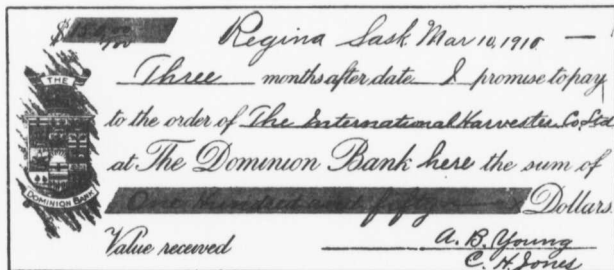 $150.00/100 Regina Sask Mar 10, 1910 —
Three months after date I promise to pay
to the order of The International Harvester Co. Ltd
at The Dominion Bank here the sum of
One Hundred and fifty x Dollars
Value received A. B. Young
C. H. Jones
THE
DOMINION BANK